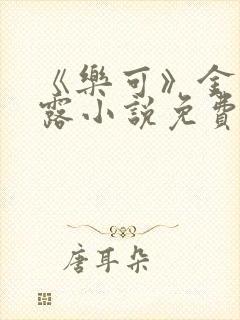 《樂可》金
露小說免費
唐耳朵